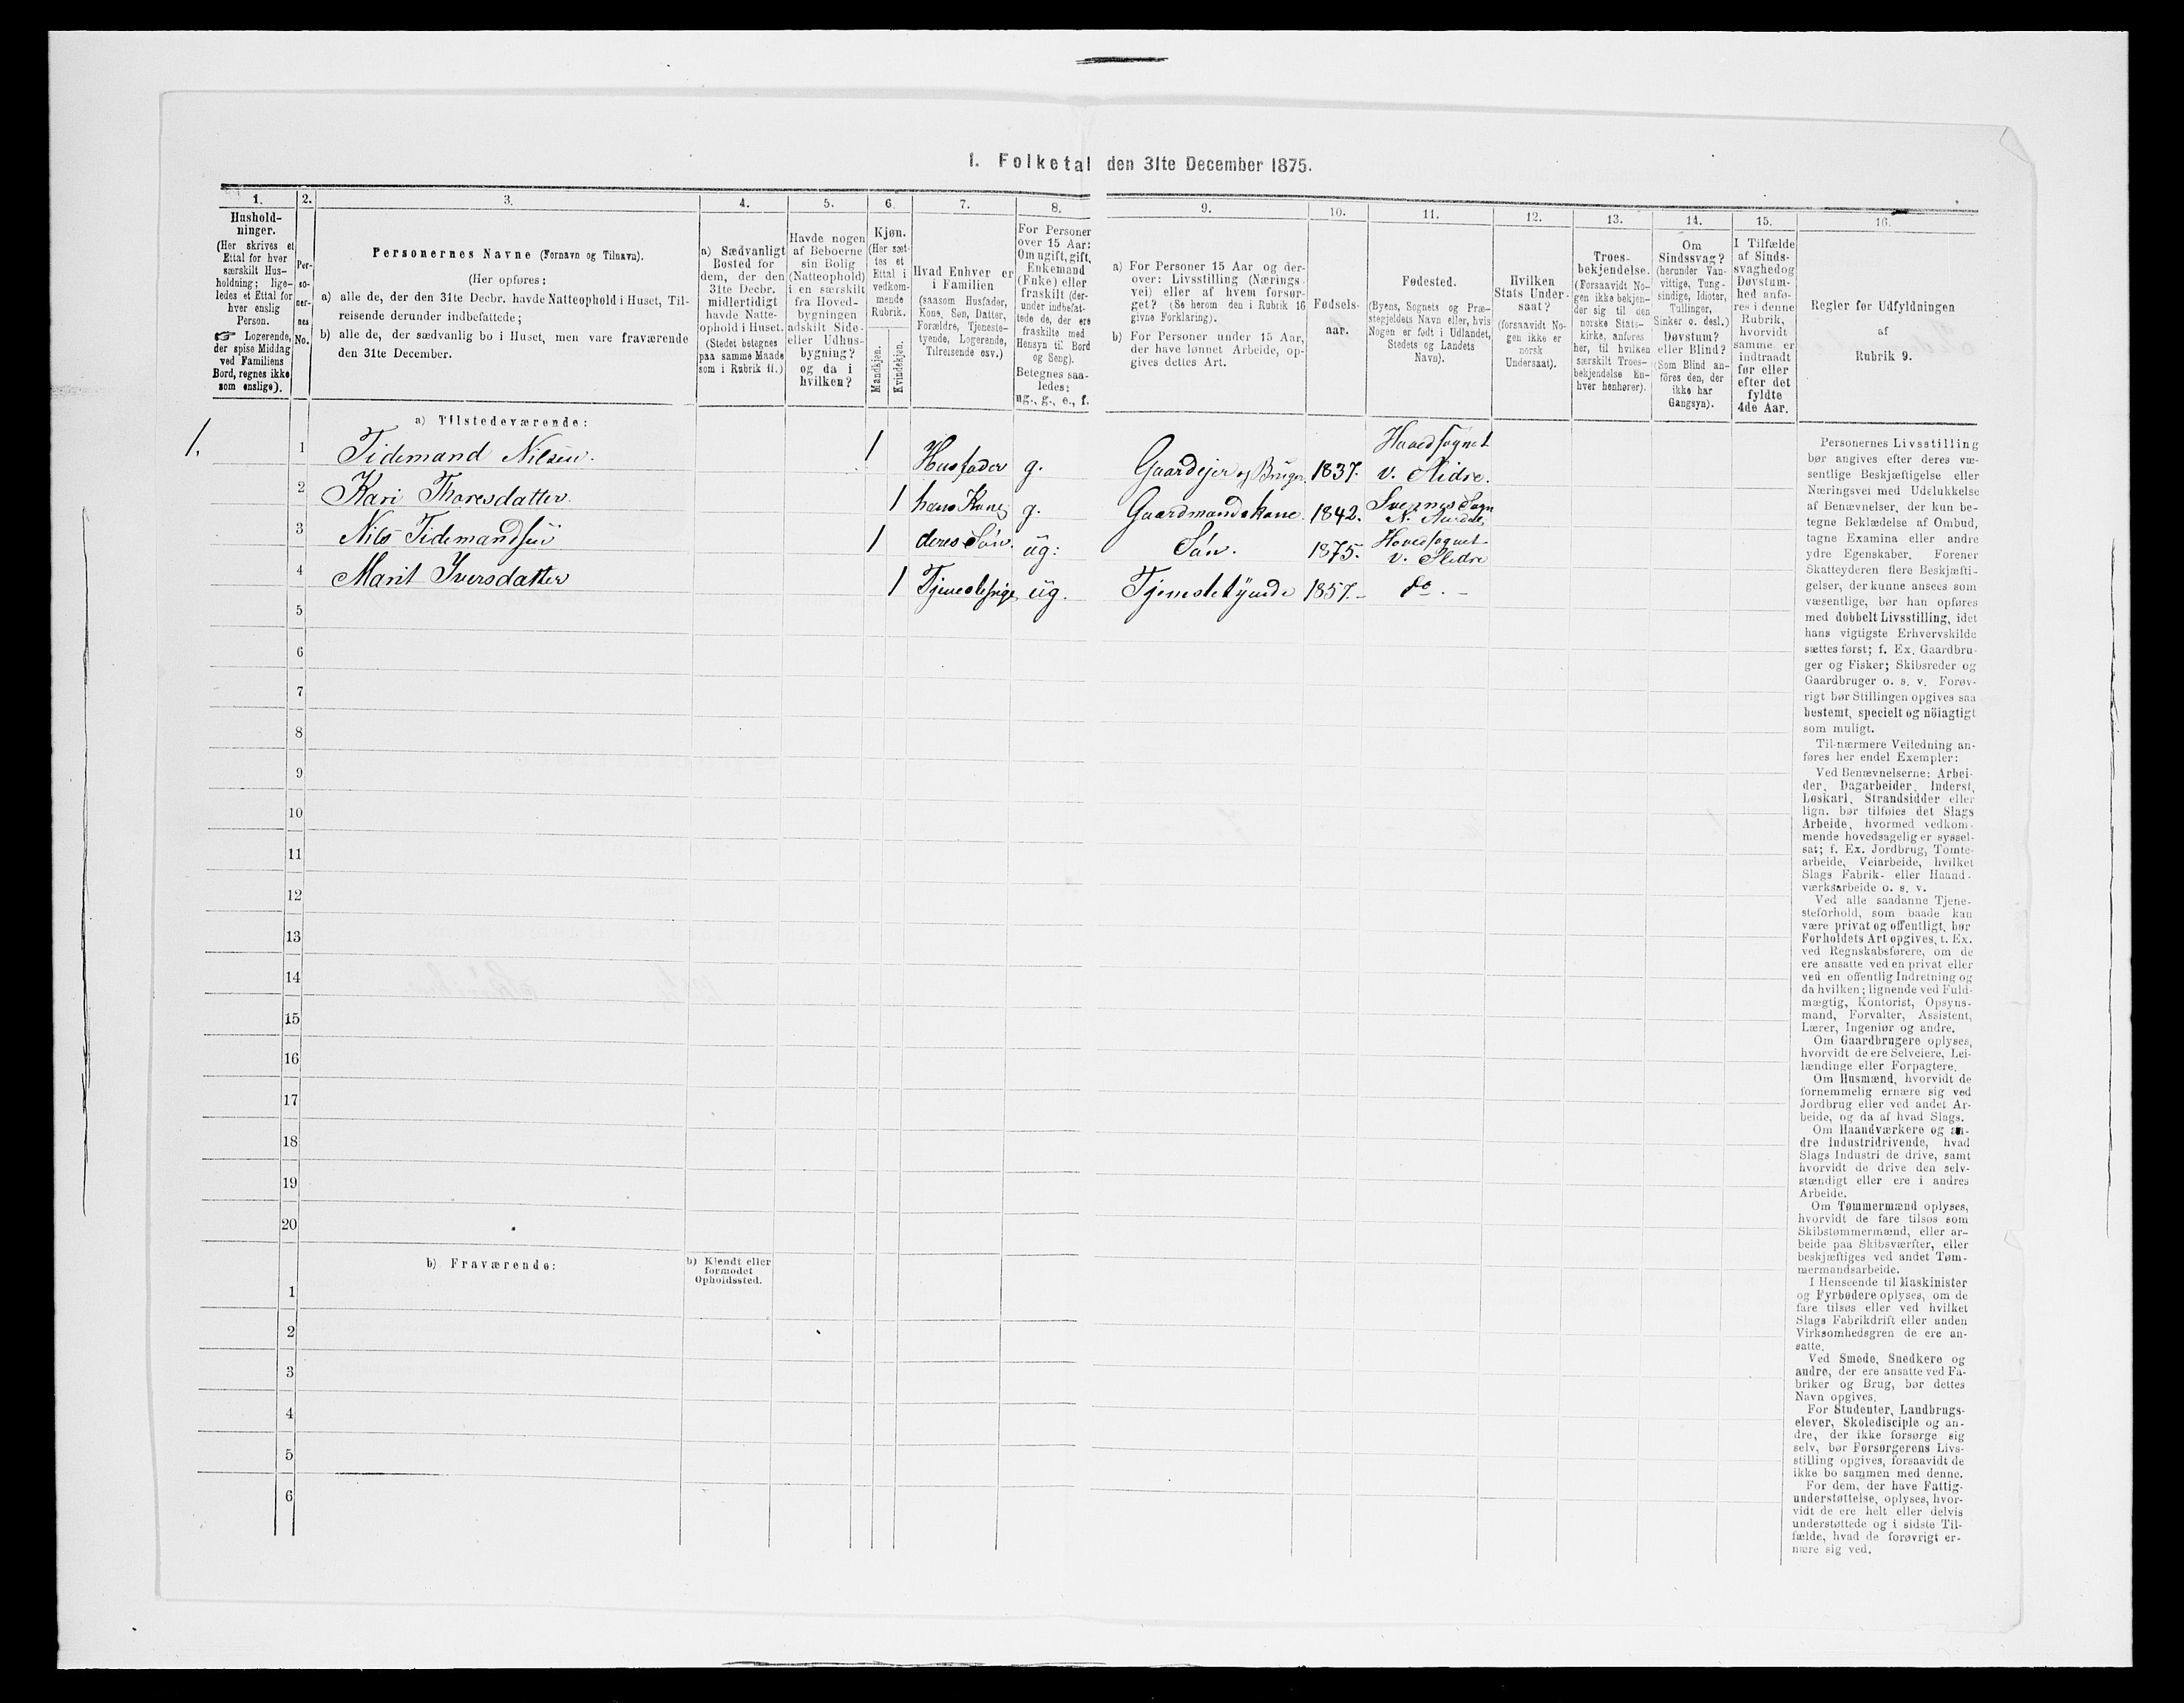 1. Folketal den 31te December 1875.
1.
Hushold-
ninger.
(Her skrives et
Ettal for hver
særskilt Hus-
holdning; lige-
ledes et Ettal for
hver enslig
Person.
☞ Logerende,
der spise Middag
ved Familiens
Bord, regnes ikke
som enslige).
2.
Per-
so-
ner-
nes
No.
3.
Personernes Navne (Fornavn og Tilnavn).
(Her opføres:
a) alle de, der den 31te Decbr. havde Natteophold i Huset, Til-
reisende derunder indbefattede;
b) alle de, der sædvanlig bo i Huset, men vare fraværende
den 31te December.
4.
a) Sædvanligt
Bosted for
dem, der den
31te Decbr.
midlertidigt
havde Natte-
ophold i Huset.
(Stedet betegnes
paa samme Maade
som i Rubrik 11.)
5.
Havde nogen
af Beboerne
sin Bolig
(Natteophold)
i en særskilt
fra Hoved-
bygningen
adskilt Side-
eller Udhus-
bygning?
og da i
hvilken?
6.
Kjøn.
(Her sæt-
tes et
Ettal i
vedkom-
mende
Rubrik.
Mandkjøn.
Kvindekjøn.
7.
Hvad Enhver er
i Familien
(saasom Husfader,
Kone, Søn, Datter,
Forældre, Tjeneste-
tyende, Logerende,
Tilreisende osv.)
8.
For Personer
over 15 Aar:
Om ugift, gift,
Enkemand
(Enke) eller
fraskilt (der-
under indbefat-
tede de, der ere
fraskilte med
Hensyn til Bord
og Seng).
Betegnes saa-
ledes:
ug., g., e., f.
9.
a) For Personer 15 Aar og der-
over: Livsstilling (Nærings-
vei) eller af hvem forsør-
get? (Se herom den i Rubrik 16
givne Forklaring).
b) For Personer under 15 Aar,
der have lønnet Arbeide, op-
gives dettes Art.
10.
Fødsels-
aar.
11.
Fødested.
(Byens, Sognets og Præ-
stegjeldets Navn eller, hvis
Nogen er født i Udlandet,
Stedets og Landets
Navn).
12.
Hvilken
Stats Under-
saat?
(forsaavidt No-
gen ikke er
norsk
Undersaat).
13.
Troes-
bekjendelse.
(Forsaavidt No-
gen ikke bekjen-
der sig til den
norske Stats-
kirke, anføres
her, til hvilken
særskilt Troes-
bekjendelse En-
hver henhører).
14.
Om
Sindssvag?
(herunder Van-
vittige, Tung-
sindige, Idioter,
Tullinger,
Sinker o. desl.)
Døvstum?
eller Blind?
(Som Blind an-
føres den, der
ikke har
Gangsyn).
15.
I Tilfælde
af Sinds-
svaghed og
Døvstum-
hed anfø-
res i denne
Rubrik,
hvorvidt
samme er
indtraadt
før eller
efter det
fyldte
4de Aar.
16.
Regler for Udfyldningen
af
Rubrik 9.
a) Tilstedeværende:
1. 1 Tidemand Nilsen. 1 Husfader g. Gaardejer og Bruger. 1837. Hovedsognet v. Slidre.
2 Kari Thoresdatter 1 hans Kone g. Gaardmandskone. 1842. Svennes Sogn N. Aurdal,
3 Nils Tidemandsen 1 deres Søn. ug: Søn. 1875. Hovedsognet v. Slidre
4 Marit Iversdatter 1 Tjenestepige ug. Tjenestetyende 1857. do. -
5
6
7
8
9
10
11
12
13
14
15
16
17
18
19
20
b) Fraværende:
b) Kjendt eller
formodet
Opholdssted.
1
2
3
4
5
6
Personernes Livsstilling
bør angives efter deres væ-
sentlige Beskjæftigelse eller
Næringsvei med Udelukkelse
af Benævnelser, der kun be-
tegne Beklædelse af Ombud,
tagne Examina eller andre
ydre Egenskaber. Forener
Skatteyderen flere Beskjæfti-
gelser, der kunne ansees som
væsentlige, bør han opføres
med dobbelt Livsstilling, idet
hans vigtigste Erhvervskilde
sættes først; f. Ex. Gaardbru-
ger og Fisker; Skibsreder og
Gaardbruger o. s. v. Forøv-
rigt bør Stillingen opgives saa
bestemt, specielt og nöiagtigt
som muligt.
Til nærmere Veiledning an-
føres her endel Exempler:
Ved Benævnelserne: Arbei-
der, Dagarbeider, Inderst,
Løskarl, Strandsidder eller
lign. bør tilføies det Slags
Arbeide, hvormed vedkom-
mende hovedsagelig er syssel-
sat; f. Ex. Jordbrug, Tomte-
arbeide, Veiarbeide, hvilket
Slags Fabrik- eller Haand-
værksarbeide o. s. v.
Ved alle saadanne Tjene-
steforhold, som baade kan
være privat og offentligt, bør
Forholdets Art opgives, t. Ex.
ved Regnskabsførere, om de
ere ansatte ved en privat eller
ved en offentlig Indretning og
da hvilken; lignende ved Fuld-
mægtig, Kontorist, Opsyns-
mand, Forvalter, Assistent,
Lærer, Ingeniør og andre.
Om Gaardbrugere oplyses,
hvorvidt de ere Selveiere, Lei-
lændinge eller Forpagtere.
Om Husmænd, hvorvidt de
fornemmelig ernære sig ved
Jordbrug eller ved andet Ar-
beide, og da af hvad Slags.
Om Haandværkere og an-
dre Industridrivende, hvad
Slags Industri de drive, samt
hvorvidt de drive den selv-
stændigt eller ere i andres
Arbeide.
Om Tømmermænd oplyses,
hvorvidt de fare tilsøs som
Skibstømmermænd, eller ar-
beide paa Skibsværfter, eller
beskjæftiges ved andet Tøm-
mermandsarbeide.
I Henseende til Maskinister
og Fyrbødere oplyses, om de
fare tilsøs eller ved hvilket
Slags Fabrikdrift eller anden
Virksomhedsgren de ere an-
satte.
Ved Smede, Snedkere og
andre, der ere ansatte ved Fa-
briker og Brug, bør dettes
Navn opgives.
For Studenter, Landbrugs-
elever, Skoledisciple og an-
dre, der ikke forsørge sig
selv, bør Forsørgerens Livs-
stilling opgives, forsaavidt de
ikke bo sammen med denne.
For dem, der have Fattig-
understøttelse, oplyses, hvor-
vidt de ere helt eller delvis
understøttede og i sidste Til-
fælde, hvad de forøvrigt er-
nære sig ved.